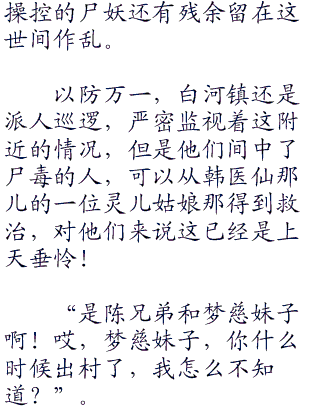 操控的尸妖还有残余留在这
世间作乱。
以防万一，白河镇还是
派人巡逻，严密监视着这附
近的情况，但是他们间中了
尸毒的人，可以从韩医仙那
儿的一位灵儿姑娘那得到救
治，对他们来说这已经是上
天垂怜！
“是陈兄弟和梦慈妹子
啊！哎，梦慈妹子，你什么
时候出村了，我怎么不知
道？”。